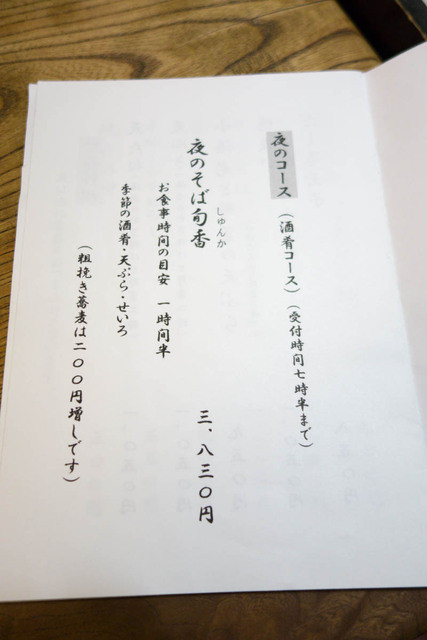 夜のコース（酒肴コース）（受付時間七時半まで）
夜のそば旬香 三、八三〇円
しゅんか
お食事時間の目安 一時間半
季節の酒肴・天ぷら・せいろ
（粗挽き蕎麦は二〇〇円増しです）